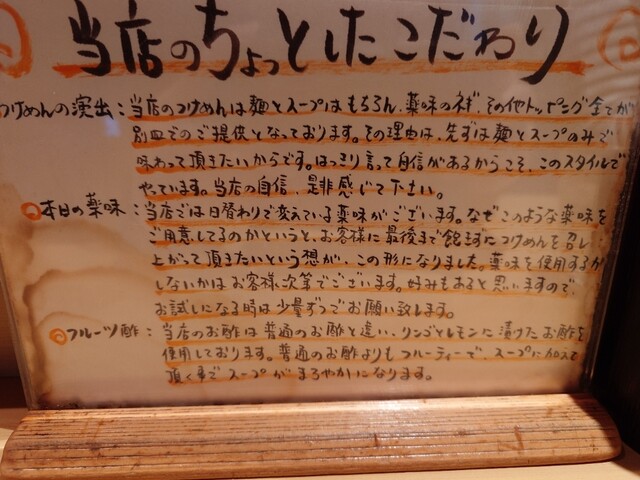 当店のちょっとしたこだわり
つけめんの演出：当店のつけめんは麺とスープはもちろん、薬味のネギ、その他トッピング全てが
別皿でのご提供となっております。その理由は、先ずは麺とスープのみで
味わって頂きたいからです。はっきり言って自信があるからこそ、このスタイルで
やています。当店の自信、是非感じて下さい。
本日の薬味：当店では日替わりで変えている薬味がございます。なぜこのような薬味を
ご用意してるのかというと、お客様に最後まで飽きずにつけめんを召し
上がって頂きたいという想いが、この形になりました。薬味を使用するか
しないかはお客様次第でございます。好みもあると思いますので、
お試しになる時は少量ずつでお願い致します。
フルーツ酢：当店のお酢は普通のお酢と違い、リンゴとレモンに漬けたお酢を
使用しております。普通のお酢よりもフルーティーで、スープに加えて
頂く事でスープがまろやかになります。